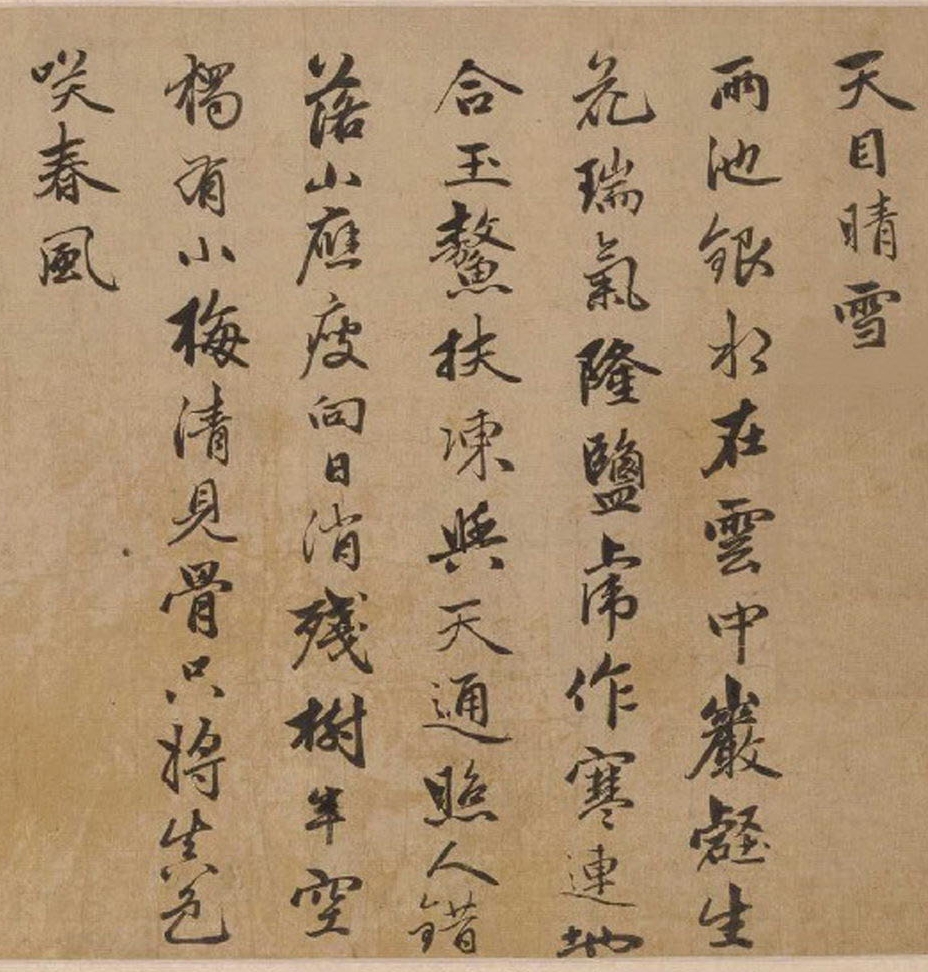 天目晴雪
雨池銀水在雲中巖壑生
花瑞氣隆鹽虎作寒連地
合玉鰲扶凍與天通照人錯
落山應瘦向日消殘樹半空
獨有小梅清見骨只將生色
咲春風